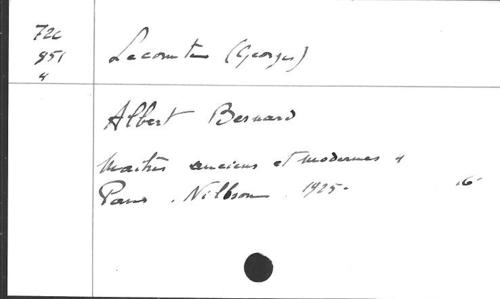 72c
851
4
Lecomte (Georges)
Albert Besnard
Maîtres anciens et modernes 4
Paris. Nilsson. 1925.
16